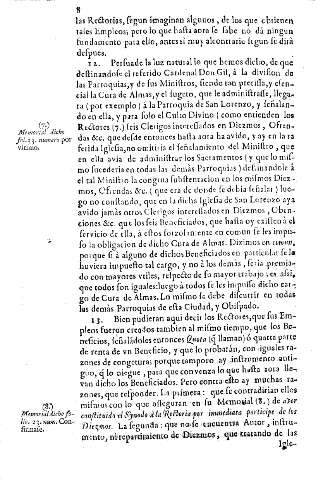 8
las Rectorias, segun imaginan algunos, de los que obtienen
tales Empleos; pero lo que hasta aora se sabe no dá ningun
fundamento para ello, antes si muy alcontrario segun se dirá
despues.
12. Persuade la luz natural lo que hemos dicho, de que
destinandose el referido Cardenal Don Gil, á la division de
las Parroquias, y de sus Ministros, siendo tan precissa, y essen-
cial la Cura de Almas, y el sugeto, que le administrasse, llega-
ta (por exemplo) á la Parroquia de San Lorenzo, y señalan-
do en ella, y para solo el Culto Divino (como entienden los
Rectores (7.) seis Clerigos interessados en Diezmos, Ofren-
das &c. que desde entonces hasta aora ha avido, y ay en la re-
ferida Iglesia, no omitiria el señalamiento del Ministro, que
en ella avia de administrar los Sacramentos (y que lo mis-
mo sucederia en todas las demás Parroquias) destinandole á
el tal Ministro la congrua substentacion en los mismos Diez-
mos, Ofrendas &c. (que era de donde se debia señalar) lue-
go no constando, que en la dicha Iglesia de San Lorenzo aya
avido jamás otros Clerigos interessados en Diezmos, Oben-
ciones &c. que los seis Beneficiados, que hasta oy existen á el
servicio de ella, á estos forzosamente en comun se les impu-
so la obligacion de dicho Cura de Almas. Diximos en comun,
porque si á alguno de dichos Beneficiados en particular se la
huviera impuesto tal cargo, y no á los demás, seria premia-
do con mayores utiles, respecto de su mayor trabajo; es assi,
que todos son iguales: luego á todos se les impuso dicho car-
go de Cura de Almas. Lo mismo se debe discurrir en todas
las demás Parroquias de esta Ciudad, y Obispado.
13. Bien pudieran aqui decir los Rectores, que sus Em-
pleos fueron creados tambien al mismo tiempo, que los Be-
neficios, señalandoles entonces Quota (q̃ llaman) ó quarta parte
de renta de un Beneficio, y que lo probatán, con iguales ra-
zones de congeturas porque tampoco ay instrumento anti-
guo, q̃ lo niegue, para que convenza lo que hasta aora lle-
van dicho los Beneficiados. Pero contra esto ay muchas ra-
zones, que responder. La primera: que se contradirian ellos
mismos con lo que asseguran en su Memorial (8.) de aver
constituido el Synodo á la Rectoria por immediata participe de los
Diezmos. La segunda: que no se encuentra Autor, instru-
mento, ni repartimiento de Diezmos, que tratando de las
Igle-
(7.)
Memorial dicho
fol. 23. numero por
ultimo.
(8.)
Memorial dicho fo-
lio. 23. num. Con-
firmase.